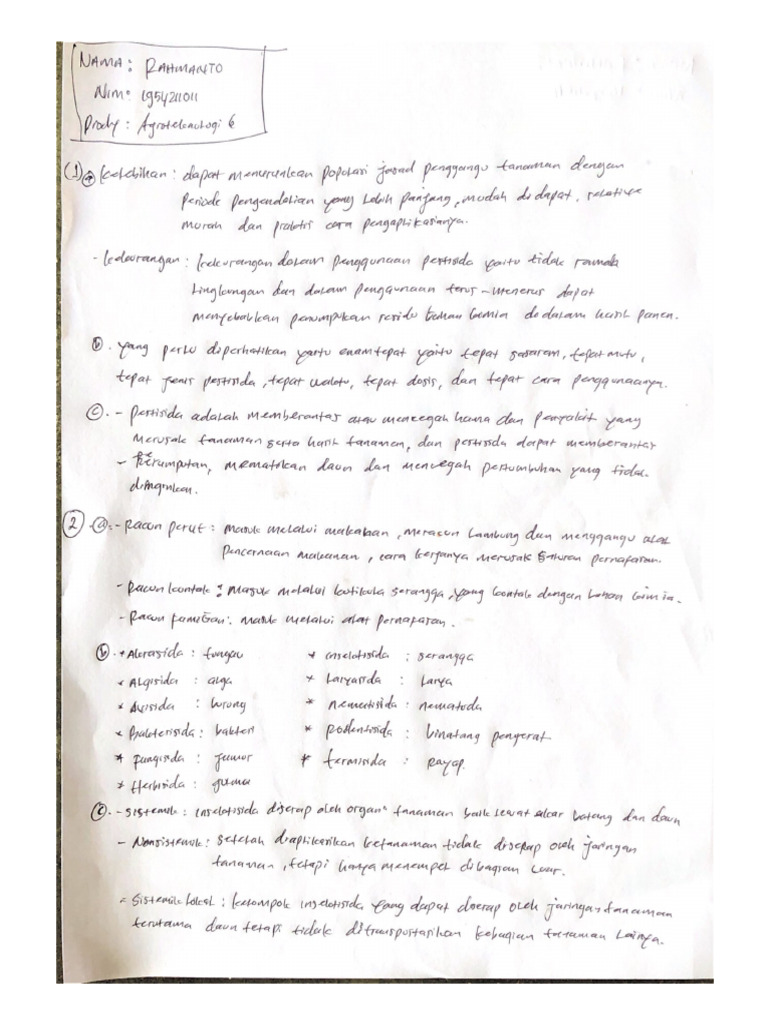 NAMA : RAHMANTO
NIM : 1954211011
Prody : Agroteknologi 6
(1) a Kelebihan : dapat menurunkan populasi jasad penggangu tanaman dengan
Periode pengendalian yang lebih panjang, mudah didapat, relative
murah dan praktis cara pengaplikasianya.
- Kekurangan : Kekurangan dalam penggunaan pestisida yaitu tidak ramah
lingkungan dan dalam penggunaan terus-menerus dapat
menyebabkan penumpukan residu bahan kimia didalam hasil panen.
b. yang perlu diperhatikan yaitu enam tepat yaitu tepat sasaran, tepat mutu,
tepat jenis pestisida, tepat waktu, tepat dosis, dan tepat cara penggunaanya.
c. - Pestisida adalah memberantas atau mencegah hama dan penyakit yang
merusak tanaman serta hasil tanaman, dan pestisida dapat memberantas
- Rerumputan, mematikan daun dan mencegah pertumbuhan yang tidak
diinginkan.
2 a. - Racun perut : masuk melalui makanan, meracun lambung dan menggangu alat
Pencernaan makanan, cara kerjanya merusak saluran pernapasan.
- Racun kontak : masuk melalui kutikula serangga, yang kontak dengan bahan kimia.
- Racun fumigan : masuk melalui alat pernapasan.
b. * Akarasida : tungau * insektisida : serangga
* Algisida : alga * Larvasida : Larva
* Avisida : burung * nematisida : nematoda
* Bakterisida : bakteri * Rodentisida : binatang pengerat
* Fungisida : jamur * termisida : rayap
* Herbisida : gulma
c. - Sistemik : insektisida diserap oleh organ tanaman baik lewat akar batang dan daun
- Nonsistemik : setelah diaplikasikan ketanaman tidak diserap oleh jaringan
tanaman, tetapi hanya menempel dibagian luar.
- Sistemik lokal : kelompok insektisida yang dapat diserap oleh jaringan tanaman
terutama daun tetapi tidak ditranspotasihan kebagian tanaman lainya.